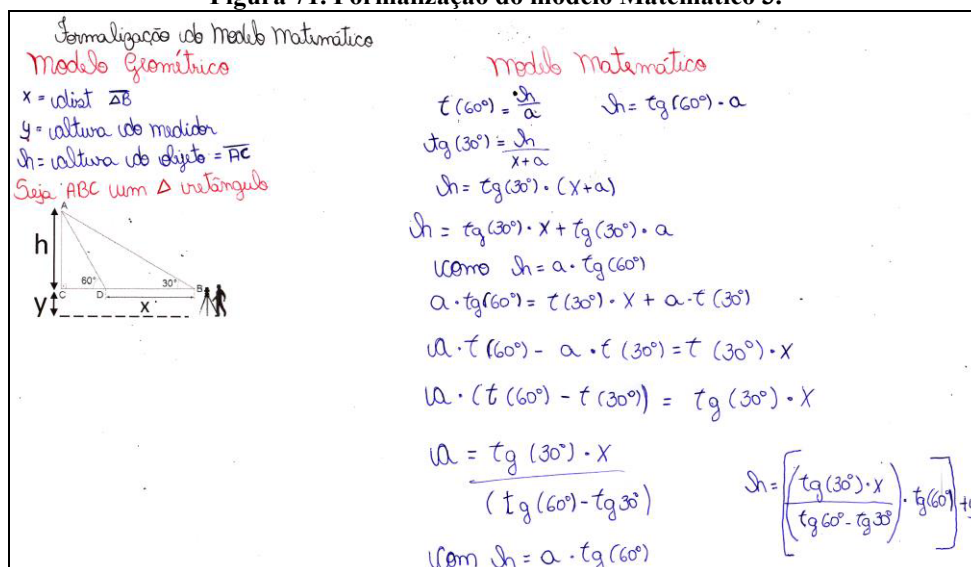 Figura 71: Formalização do modelo Matemático 3.
Formalização do Modelo Matemático
Modelo Geométrico
x = dist ΔB
y = altura do medidor
h = altura do objeto = AC
Seja ABC um Δ retângulo
A
h
60°
30°
C
D
B
y
x
Modelo Matemático
t(60°) = h/a h = tg(60°) · a
tg(30°) = h/(x+a)
h = tg(30°) · (x+a)
h = tg(30°) · x + tg(30°) · a
como h = a · tg(60°)
a · tg(60°) = t(30°) · x + a · t(30°)
a · t(60°) - a · t(30°) = t(30°) · x
a · (t(60°) - t(30°)) = tg(30°) · x
a = tg(30°) · x
(tg(60°) - tg30°)
h = [((tg(30°) · x)/(tg60° - tg30°)) · tg(60°)] +
Com h = a · tg(60°)